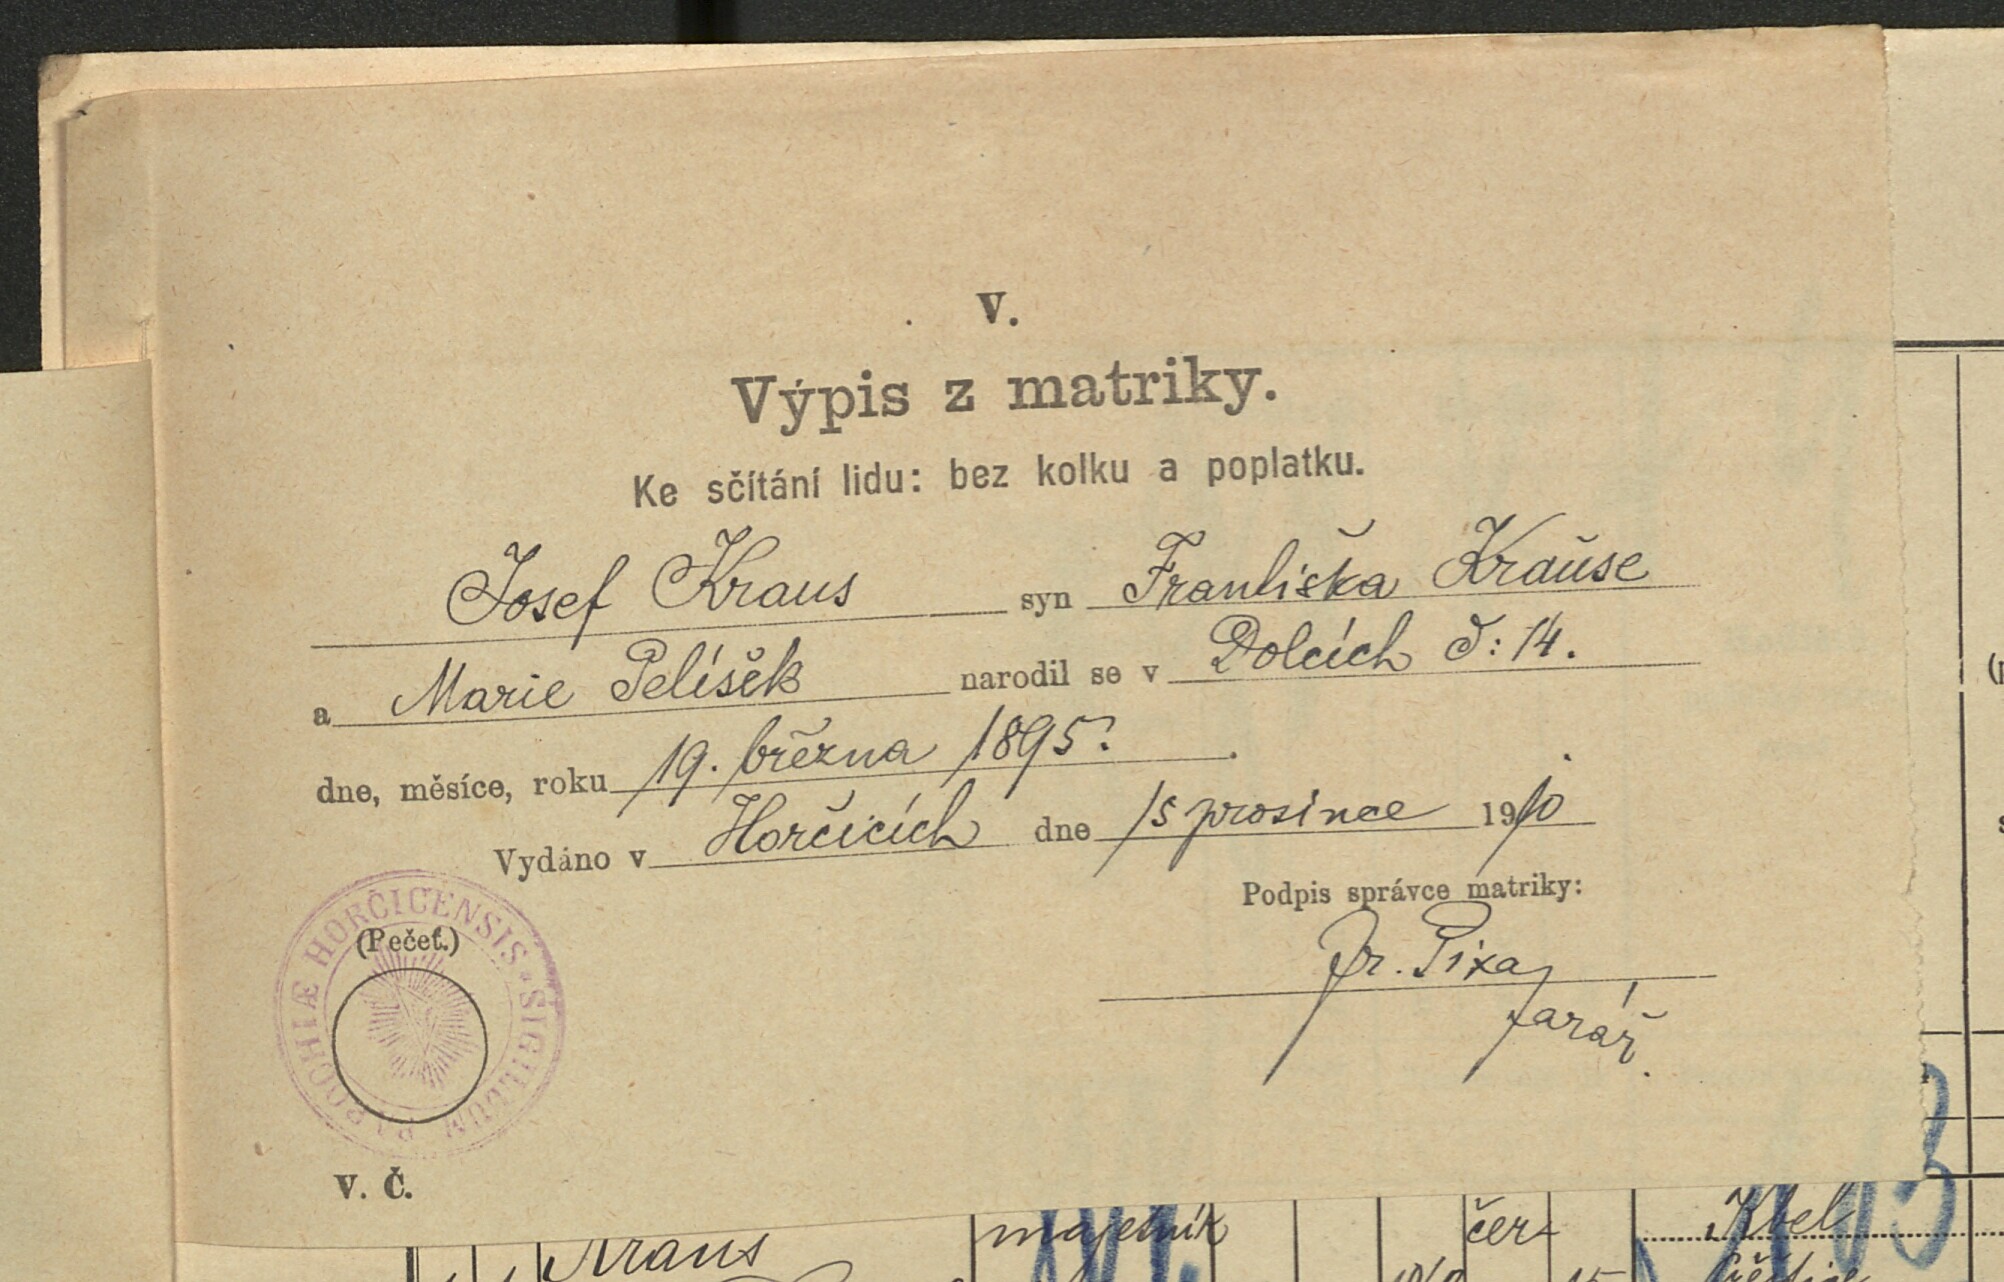 V.
Výpis z matriky.
Ke sčítání lidu: bez kolku a poplatku.
Josef Kraus syn Františka Krause
a Marie Pelíšek narodil se v Dolcích č: 14.
dne, měsíce, roku 19. března 1895.
Vydáno v Horčicích dne 15 prosince 1910
Podpis správce matriky:
(Pečeť.)
SIGILLUM PAROCHIÆ HORČICENSIS
Fr. Pixa
farář.
V. Č.
Kraus majetník čer- Kbel